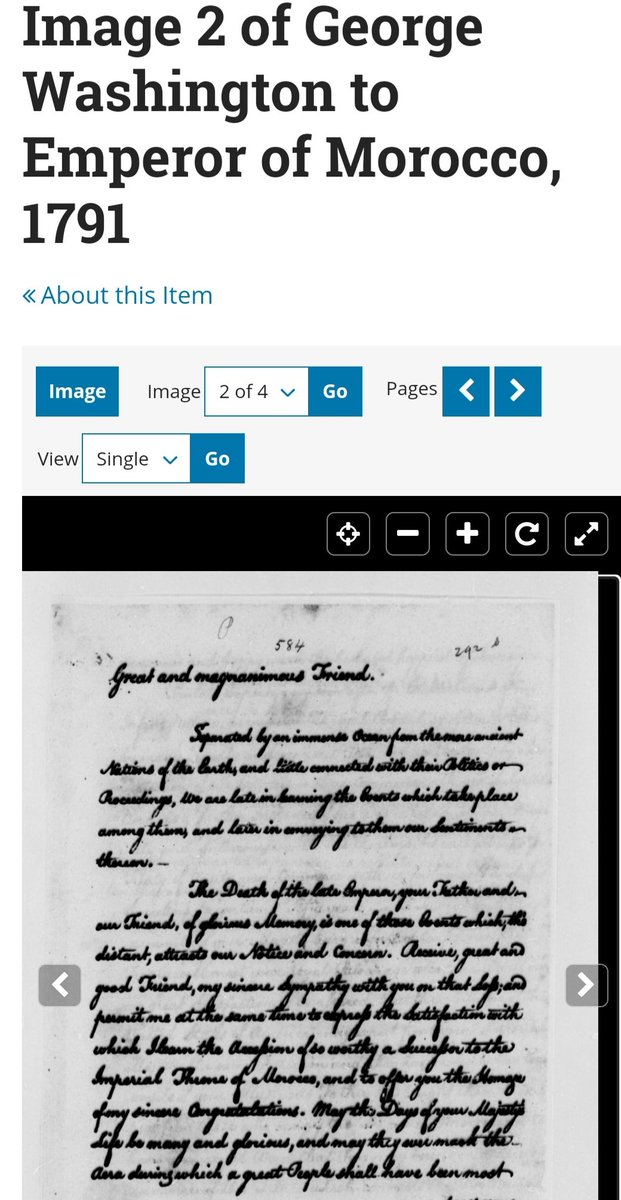 Image 2 of George
Washington to
Emperor of Morocco,
1791
« About this Item
Image Image 2 of 4 Go Pages
View Single Go
584 292
Great and magnanimous Friend.
Separated by an immense Ocean from the more ancient
Nations of the Earth, and little connected with their Politics or
Proceedings, We are late in learning the Events which take place
among them, and later in conveying to them our Sentiments
thereon.—
The Death of the late Emperor, your Father and
our Friend, of glorious Memory, is one of those Events which, tho'
distant, attracts our Notice and Concern. Receive, great and
good Friend, my sincere Sympathy with you on that Loss; and
permit me at the same time to express the Satisfaction with
which I learn the Accession of so worthy a Successor to the
Imperial Throne of Morocco, and to offer you the Homage
of my sincere Congratulations. May the Days of your Majesty's
life be many and glorious, and may they ever mark the
Aera during which a great People shall have been most